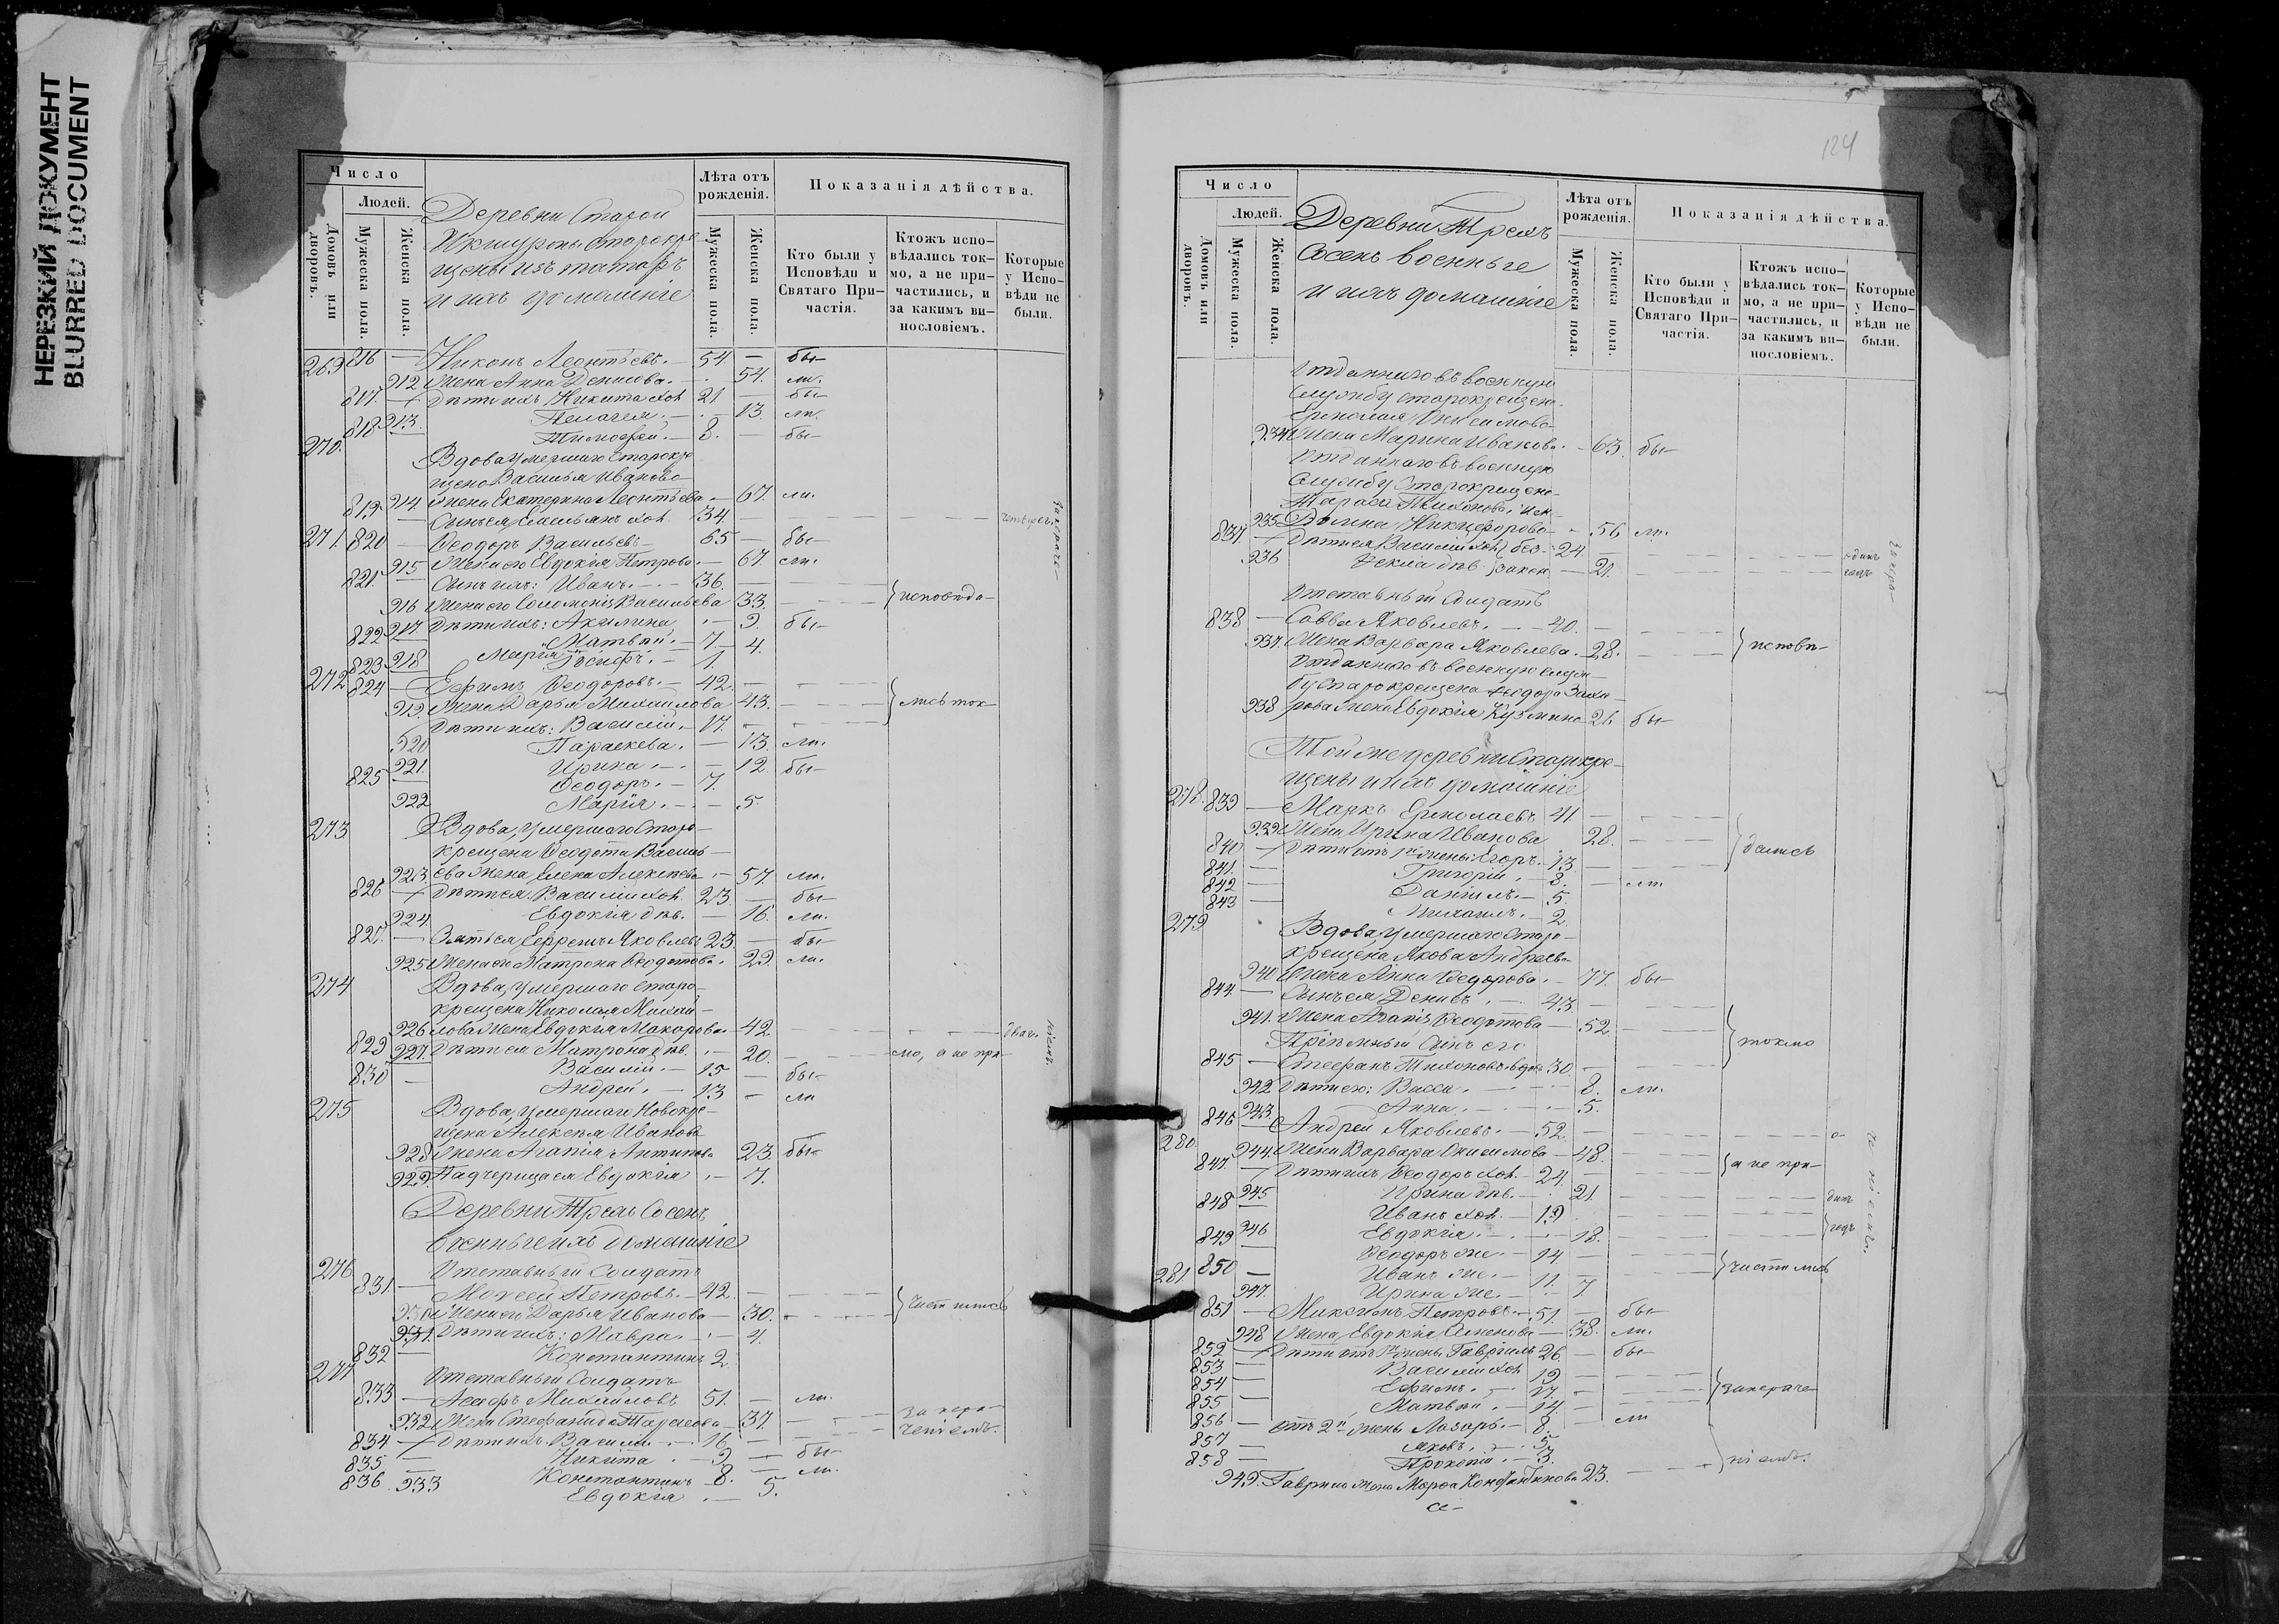 НЕРЕЗКИЙ ДОКУМЕНТ
BLURRED DOCUMENT
Число
Людей.
Домовъ или дворовъ.
Мужеска пола.
Женска пола.
Деревни Старой
Икшурмы Старокре-
щены изъ татаръ
и ихъ домашніе
Лѣта отъ рожденія.
Мужеска пола.
Женска пола.
Показанія дѣйства.
Кто были у Исповѣди и Святаго При-частія.
Ктожъ испо-вѣдались ток-мо, а не при-частились, и за какимъ ви-нословіемъ.
Которые у Испо-вѣди не были.
269 816 — Никонъ Леонтьевъ. — 54 — бы-
912 Жена Анна Денисова. — 54. ли.
817. — Дѣти ихъ Никита хол. 21 — бы-
913. Пелагея. — 13. ли.
818 Тимофей. — 8. — бы-
270. Вдова умершаго Старокре-
щена Василья Иванова
914. Жена Екатерина Леонтьева — 67. ли.
819 — Сынъ ея Емельянъ хол. 34.
271. 820 — Ѳеодоръ Васильевъ — 65 — бы-
915 Жена его Евдокія Петрова. — 67. ли.
821. — Сынъ ихъ: Иванъ. — 36.
916 Жена его Соломонія Васильева 33. исповѣда-
917 Дѣти ихъ: Акилина — 9. бы-
822 Матвѣй. — 7. —
918 Марія 4.
823 Іосифъ. — 1.
272 824 — Ефимъ Ѳеодоровъ. — 42.
919. Жена Дарья Михайлова 43. лись ток-
Дѣти ихъ: Василій. — 17.
920 Параскева. — 13. ли.
921. Ирина. — 12. бы-
825 — Ѳеодоръ. — 7.
922 Марія. — 5.
273 Вдова, умершаго Старо-
крещена Ѳеодота Василь-
923. ева жена Елена Алексѣева — 57. ли.
826 — Дѣти ея Василій хол. 23. — бы-
924. Евдокія дѣв. — 16. ли.
827. — Зять ея Ефремъ Яковлевъ 23. — бы-
925 Жена его Матрона Ѳеодотова. 29. ли.
274 Вдова, умершаго Старо-
крещена Николая Михай-
926 лова Жена Евдокія Макарова 42
829 927. Дѣти ея Матрона дѣв. — 20. мо, а не при-
830 — Василій. — 15 — бы-
Андрей. — 13 — ли
275 Вдова, умершаго Новокре-
щена Алексѣя Иванова
928 Жена Агапія Антипова 23 бы-
929. Падчерица ея Евдокія — 7.
Деревни Трехъ Сосенъ
военные ихъ домашніе
276 Отставный Солдатъ
831 — Мойсей Петровъ. — 42.
930 Жена его Дарья Иванова — 30. частились
931. Дѣти ихъ: Мавра. — 4.
832 — Константинъ 2.
277 Отставный Солдатъ
833 — Іосифъ Михайловъ 51. — ли.
932 Жена Стефанида Тарасова — 37.
834 — Дѣти ихъ Василій — 16.
835 — Никита — 9 — бы-
836 Константинъ 8. — ли.
933 Евдокія — 5.
124
Число
Людей.
Домовъ или дворовъ.
Мужеска пола.
Женска пола.
Деревни Трехъ
Сосенъ военные
и ихъ домашніе
Лѣта отъ рожденія.
Мужеска пола.
Женска пола.
Показанія дѣйства.
Кто были у Исповѣди и Святаго При-частія.
Ктожъ испо-вѣдались ток-мо, а не при-частились, и за какимъ ви-нословіемъ.
Которые у Испо-вѣди не были.
Отданнаго въ военную
службу старокрещена
Ермолая Онисимова
934 Жена Марина Иванова. — 63. бы-
Отданнаго въ военную
службу Старокрещена
Тараса Тихонова, жен-
935 Никифорова — 56 ли.
837 — Дѣти ея Василій хол. без- 24.
936 Ѳекла дѣв. закон. — 21. одинъ годъ
Отставный Солдатъ
838 — Савва Яковлевъ. — 40.
937. Жена Варвара Яковлева. 28. исповѣ-
Отданнаго въ военную служ-
бу Старокрещена Ѳедора Заха
938 рова жена Евдокія Кузмина 26. бы-
Той же деревни Старокре-
щены и ихъ домашніе
278. 839 — Маркъ Ермолаевъ 41
939 Жена Ирина Иванова 28. дались
840 — Дѣти отъ 1й жены: Егоръ. 13
841. — Григорій. 8. — ли.
842 — Даніилъ. — 5.
843 — Михаилъ. — 2.
279 Вдова, умершаго Старо-
крещена Якова Андреева
940 Жена Анна Ѳедорова. — 77. бы-
844. — Сынъ ея Денисъ. — 43.
941. Жена Агапія Ѳеодотова — 52. токмо
Пріемный Сынъ его
845 — Стефанъ Тихоновъ вдов. 30.
942 Дѣти его: Васса. — 8. ли.
943. Анна. — 5.
846 — Андрей Яковлевъ. — 52.
280 944. Жена Варвара Онисимова — 48. а не при-
847. — Дѣти ихъ Ѳеодоръ хол. — 24.
945 Ирина дѣв. — 21.
848 — Иванъ хол. — 19
946 Евдокія. — 18.
849 — Ѳеодоръ же. — 14
850 — Иванъ же. — 11. частились
947. Ирина же. — 7
281 851 — Максимъ Петровъ. — 51. — бы-
948 Жена Евдокія Семенова — 38. ли.
852 — Дѣти отъ 1й жены Гавріилъ 26 — бы-
853 — Василій хол. 19
854 — Ефимъ. — 17.
855 — Матвѣй. — 14. —
856 — отъ 2й жены Лазарь. — 8. — ли
857 — Яковъ. — 5.
858 — Прокопій. — 3. ніемъ.
949. Гаврила жена Марѳа Константинова 23.